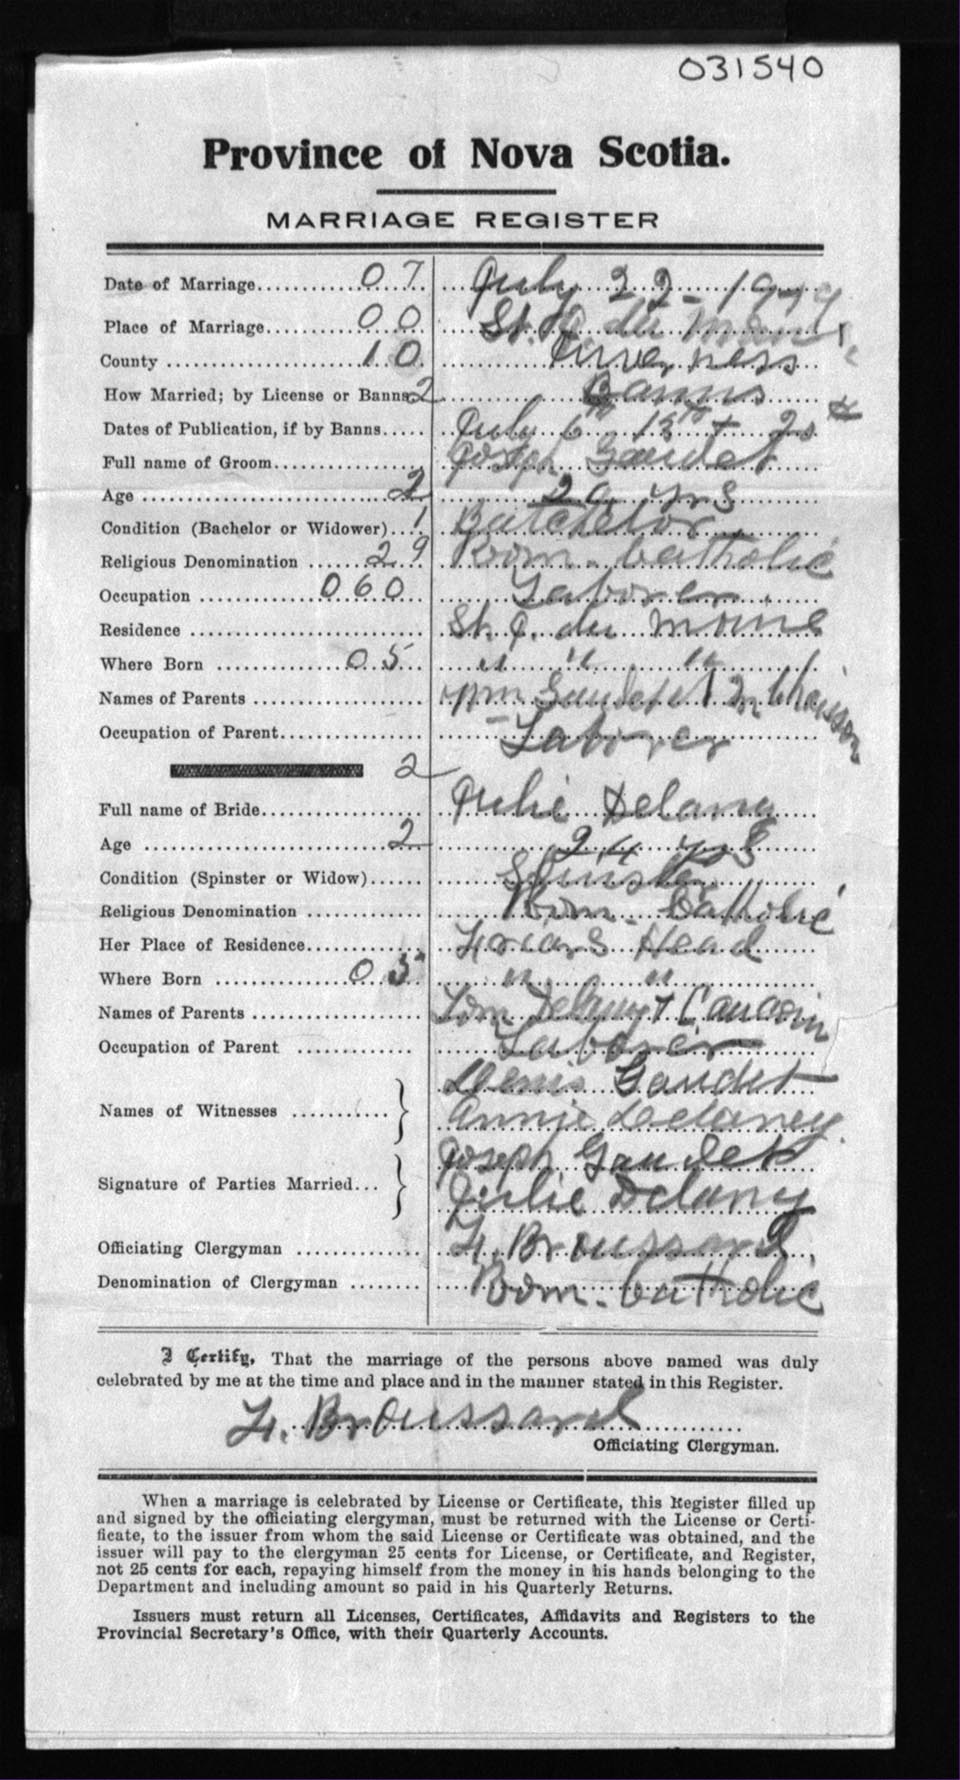 031540
Province of Nova Scotia.
MARRIAGE REGISTER
Date of Marriage 07 July 22 - 1919
Place of Marriage 00 St. J. du Moine
County 10 Inverness
How Married; by License or Banns 2 Banns
Dates of Publication, if by Banns July 6th 13th + 20
Full name of Groom Joseph Gaudet
Age 2 yrs
Condition (Bachelor or Widower) 1 Batchelor
Religious Denomination 29 Rom. Catholic
Occupation 060 Laborer
Residence St. J. du Moine
Where Born 05 " " "
Names of Parents Wm Gaudet + M Chaisson
Occupation of Parent Laborer
2
Full name of Bride Julie Delany
Age 2 24 yrs
Condition (Spinster or Widow) Spinster
Religious Denomination Rom. Catholic
Her Place of Residence Friars Head
Where Born 05 " "
Names of Parents Tom Delany +
Occupation of Parent Laborer
Names of Witnesses } Denis Gaudet
Annie Delaney
Signature of Parties Married } Joseph Gaudet
Julie Delany
Officiating Clergyman Broussard
Denomination of Clergyman Rom. Catholic
I Certify, That the marriage of the persons above named was duly
celebrated by me at the time and place and in the manner stated in this Register.
Broussard
Officiating Clergyman.
When a marriage is celebrated by License or Certificate, this Register filled up
and signed by the officiating clergyman, must be returned with the License or Certi-
ficate, to the issuer from whom the said License or Certificate was obtained, and the
issuer will pay to the clergyman 25 cents for License, or Certificate, and Register,
not 25 cents for each, repaying himself from the money in his hands belonging to the
Department and including amount so paid in his Quarterly Returns.
Issuers must return all Licenses, Certificates, Affidavits and Registers to the
Provincial Secretary's Office, with their Quarterly Accounts.